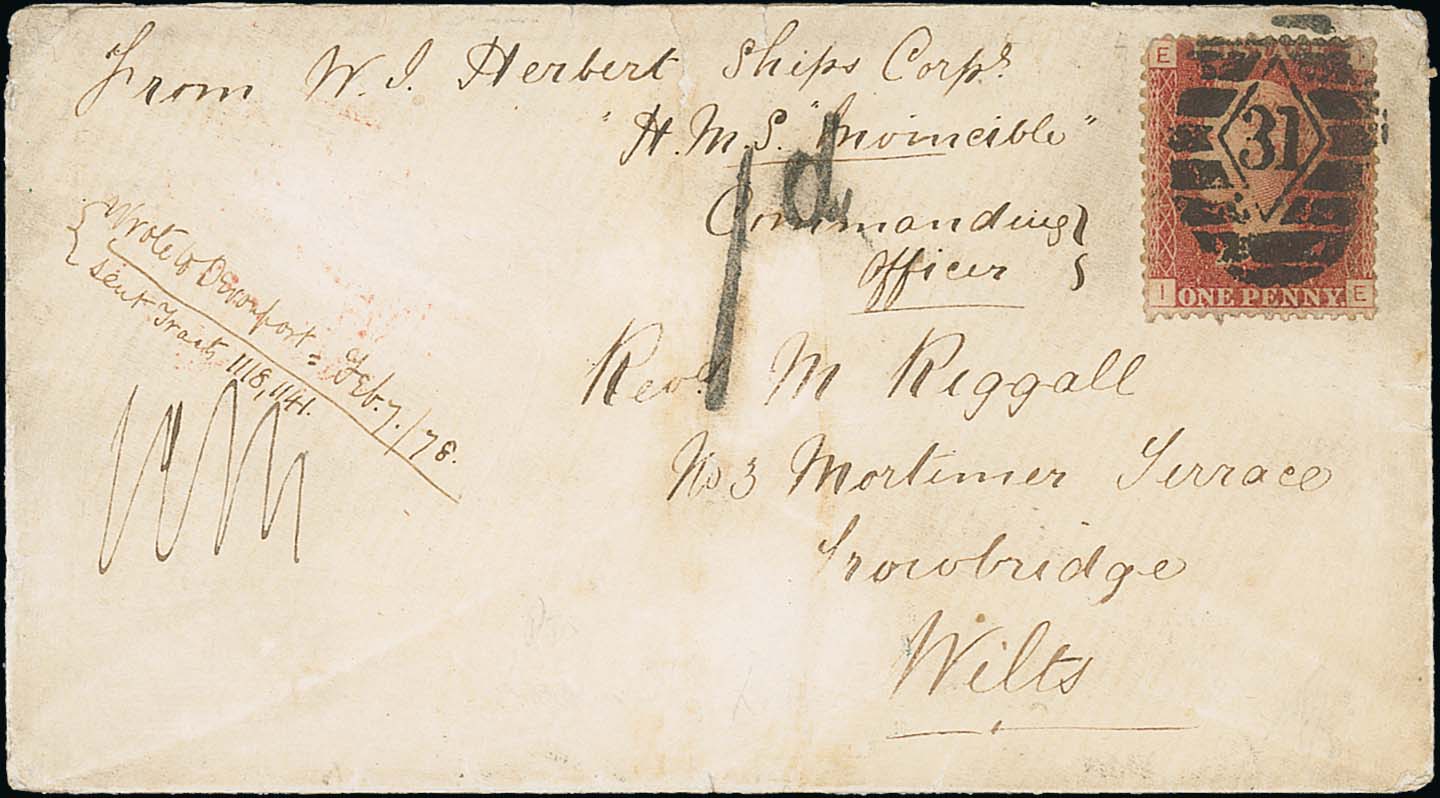 From W. J. Herbert Ships Corpl.
"H.M.S. "Invincible"
1d
Commanding
Officer
Revd. M Riggall
No 3 Mortimer Terrace
Trowbridge
Wilts
Wrote to Devonport = Feb. 7./78.
Sent Tracts 1118, 1141.
E
31
I ONE PENNY E